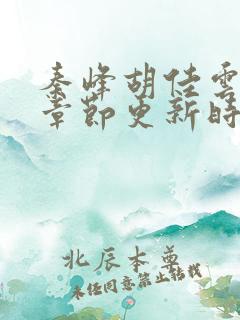 秦峰胡佳雲
章節更新時
北辰本尊
未經同意禁止轉載